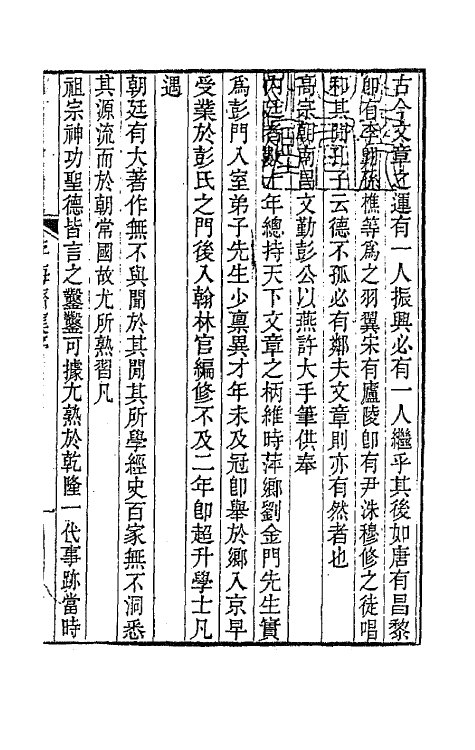 古今文章之運有一人振興必有一人繼乎其後如唐有昌黎
卽有李翺孫樵等爲之羽翼宋有廬陵卽有尹洙穆修之徒唱
和其間孔子云德不孤必有鄰夫文章則亦有然者也
高宗朝南昌文勤彭公以燕許大手筆供奉
內廷者數十年總持天下文章之柄維時萍鄉劉金門先生實
爲彭門入室弟子先生少稟異才年未及冠卽舉於鄉入京早
受業於彭氏之門後入翰林官編修不及二年卽超升學士凡
遇
朝廷有大著作無不與聞於其間其所學經史百家無不洞悉
其源流而於朝常國故尤所熟習凡
祖宗神功聖德皆言之鑿鑿可據尤熟於乾隆一代事跡當時